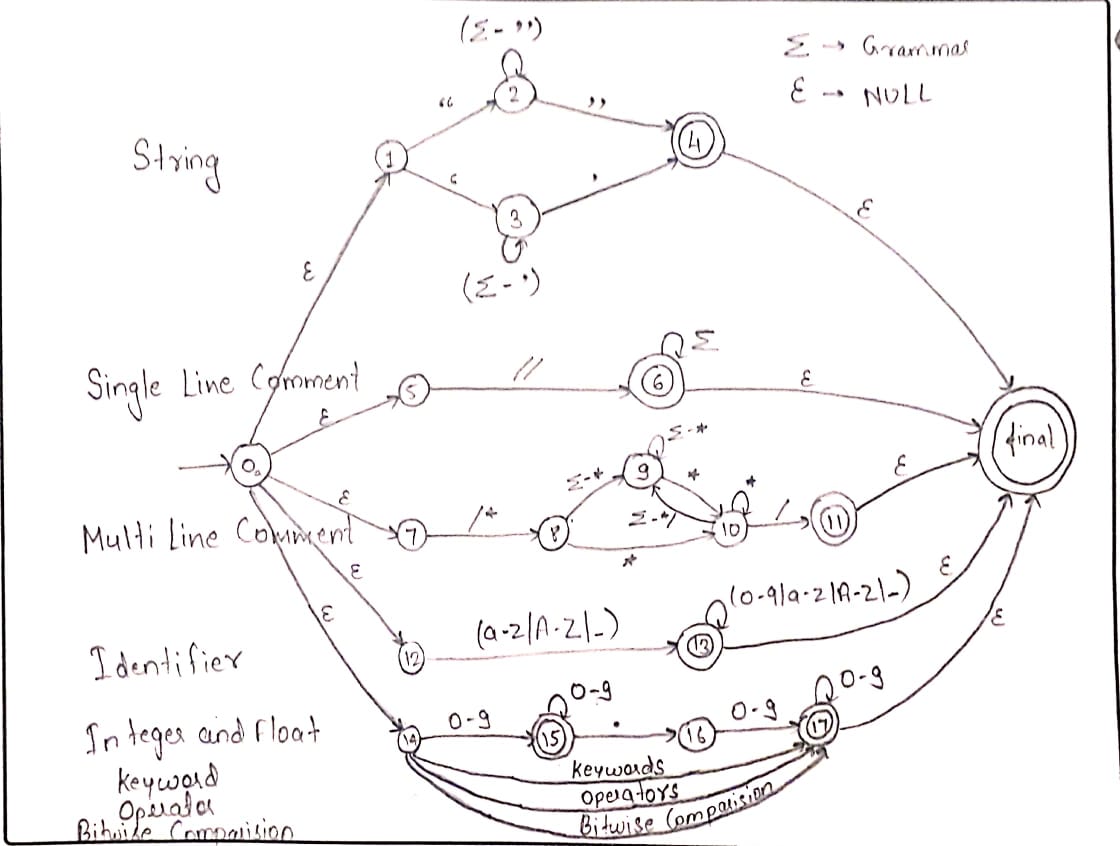 (Σ - ”)
Σ → Grammar
ε → NULL
“
2
”
String
1
4
‘
’
3
ε
ε
(Σ - ')
Single Line Comment
5
//
6
Σ
ε
ε
0
final
ε
Multi Line Comment
7
/*
8
Σ-*
9
Σ-*
*
Σ-*/
*
10
*
/
11
ε
ε
ε
Identifier
12
(a-z|A-Z|_)
13
(0-9|a-z|A-Z|_)
ε
ε
Integer and Float
14
0-9
15
0-9
.
16
0-9
17
0-9
Keyword
Operator
Bitwise Comparision
Keywords
Operators
Bitwise Comparision